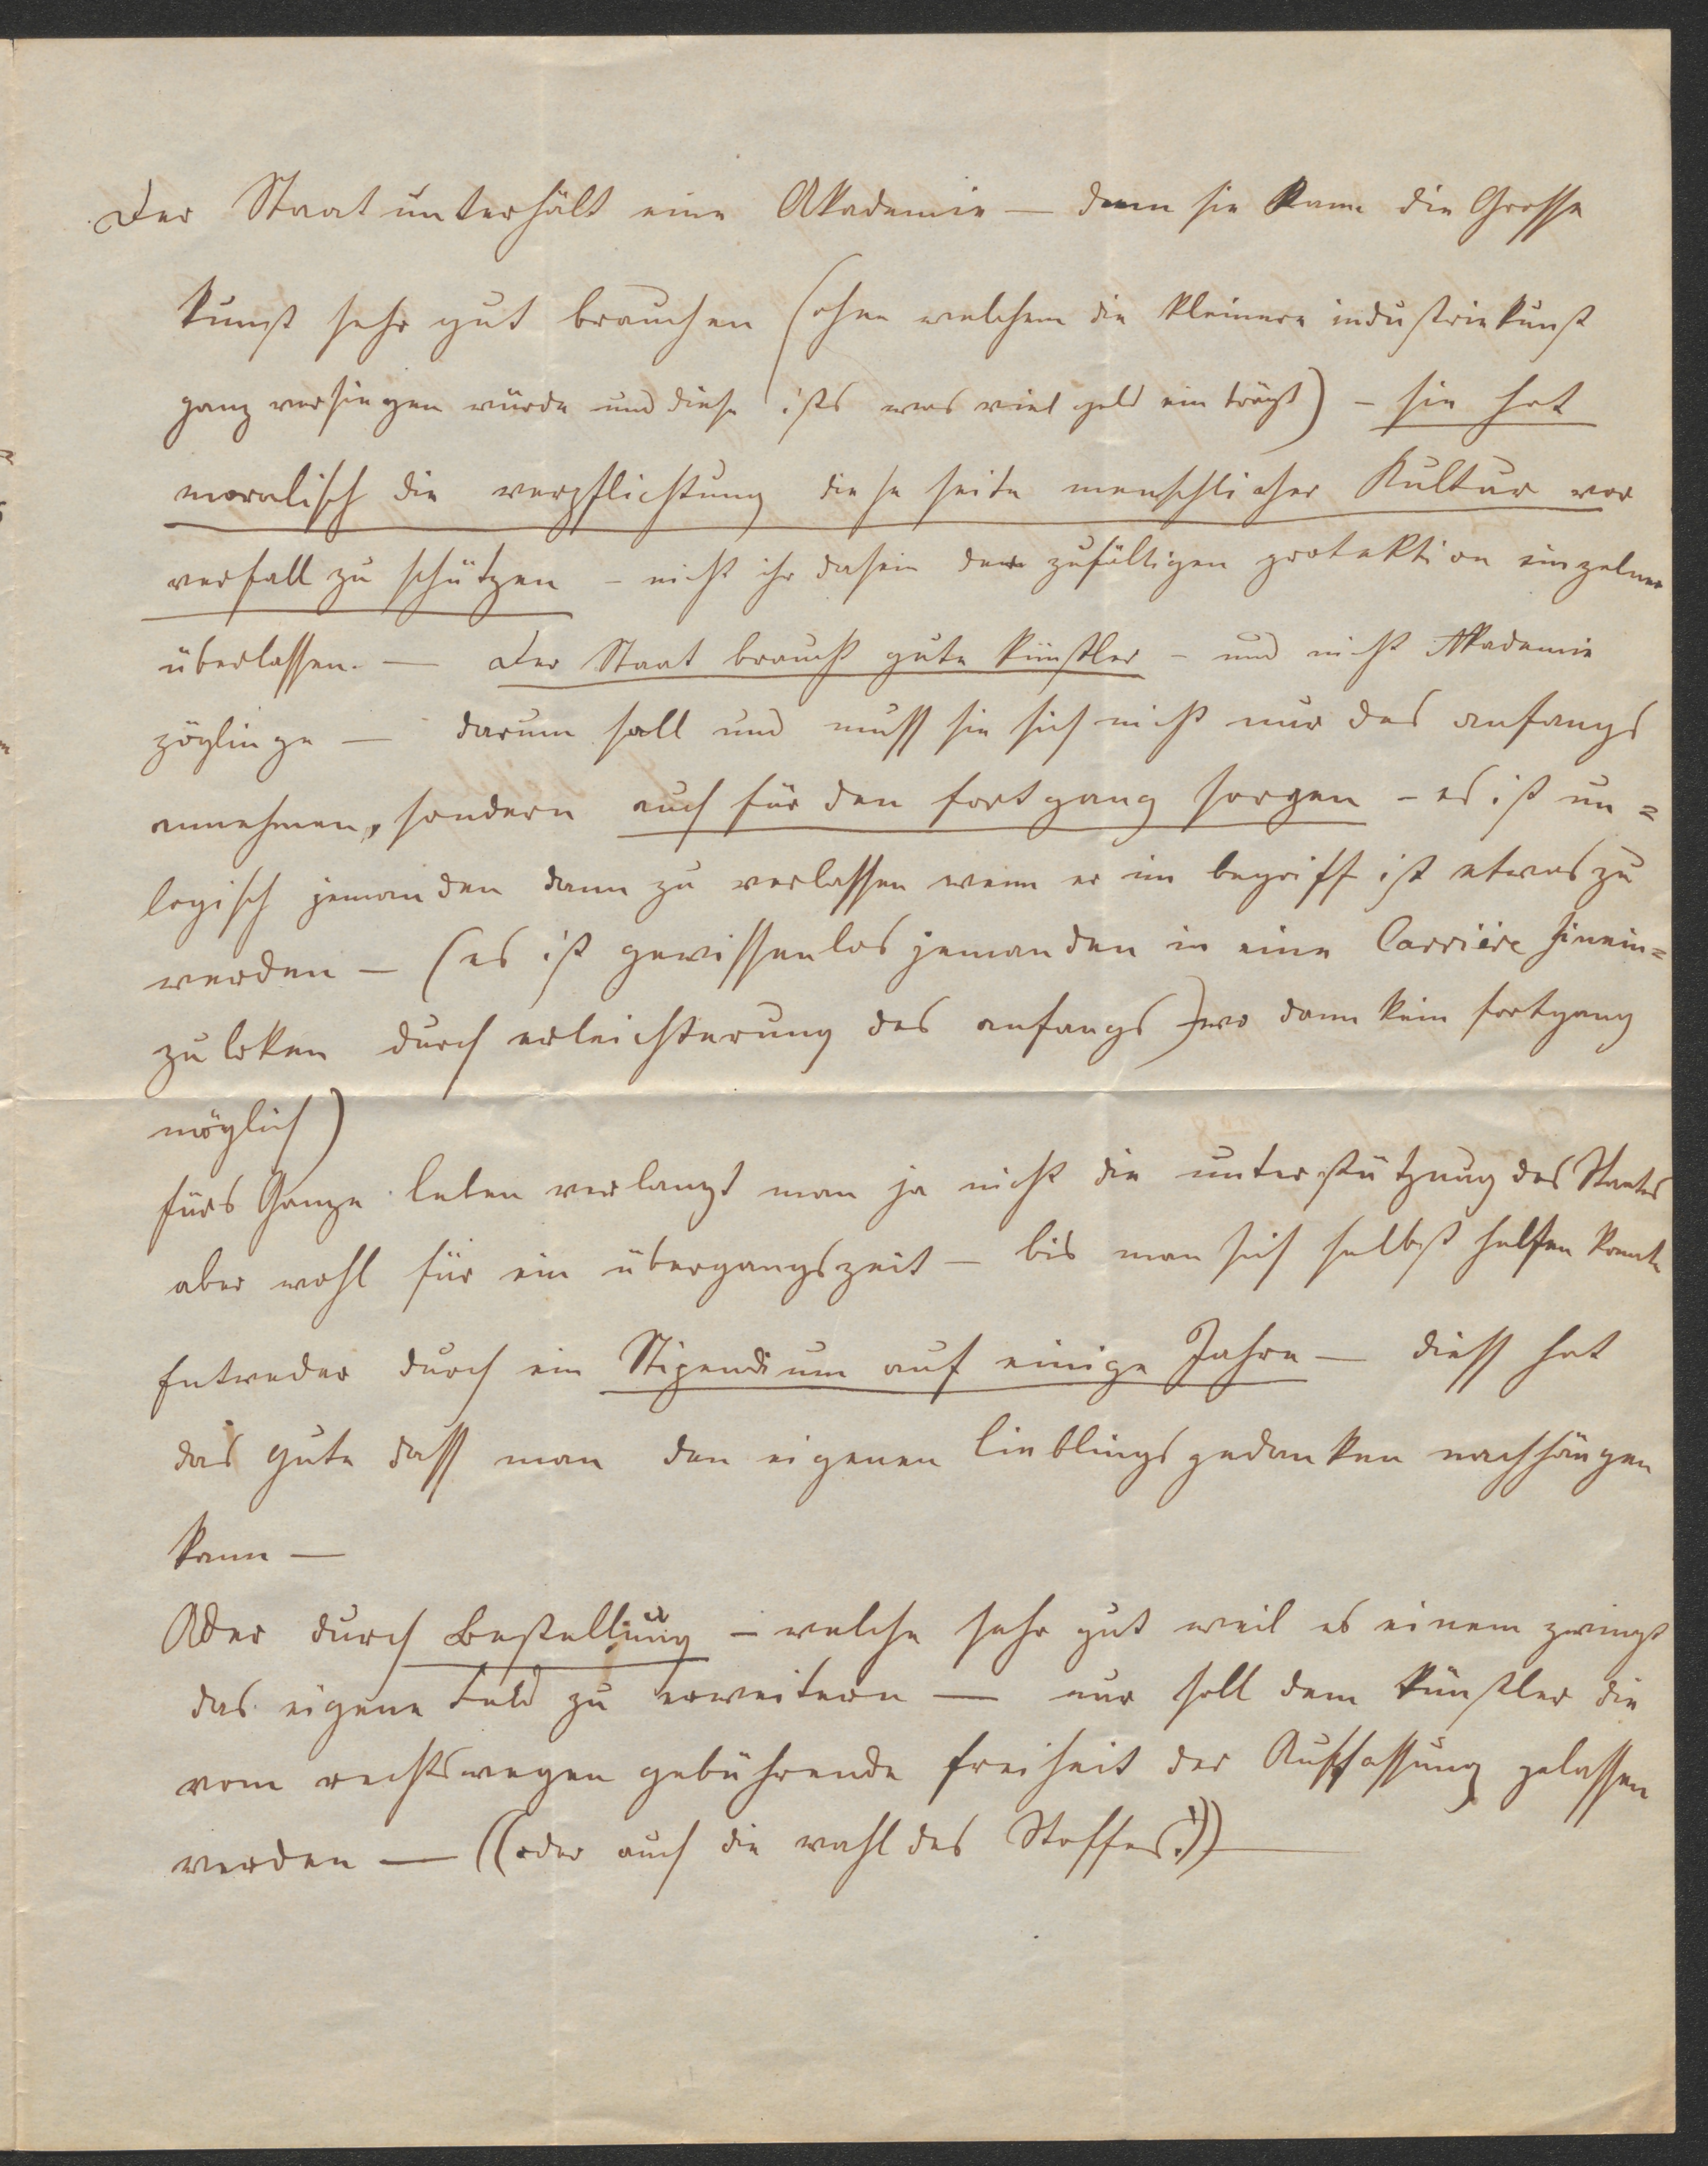 Der Staat unterhält eine Akademie — denn sie kann die Grosse
kunst sehr gut brauchen (ohne welchem die kleinere industriekunst
ganz versiegen würde und diese ists was viel geld ein trägt) – sie hat
moralisch die verpflichtung diese seite menschlicher Kultur vor
verfall zu schützen – nicht ihr dasein der zufälligen protektion einzelner
überlassen. — Der Staat braucht gute künstler – und nicht Akademie
zöglinge — darum soll und muss sie sich nicht nur des anfangs
annehmen, sondern auch für den fortgang sorgen – es ist un=
logisch jemanden dann zu verlassen wenn er im begriff ist etwas zu
werden — (es ist gewissenlos jemanden in eine Carrière hinein=
zu loken durch erleichterung des anfangs) wo dann kein fortgang
möglich)
fürs Ganze leben verlangt man ja nicht die unterstützung des Staates
aber wohl für ein übergangszeit — bis man sich selbst helfen konnte
Entweder durch ein Stipendium auf einige Jahre — diess hat
das gute dass man den eigenen lieblings gedanken nachhängen
kann —
Oder durch Bestellung – welche sehr gut weil es einem zwingt
das eigene Feld zu erweitern — nur soll dem künstler die
vom rechtswegen gebührende freiheit der Auffassung gelassen
werden — ((oder auch die wahl des Stoffes!)) —